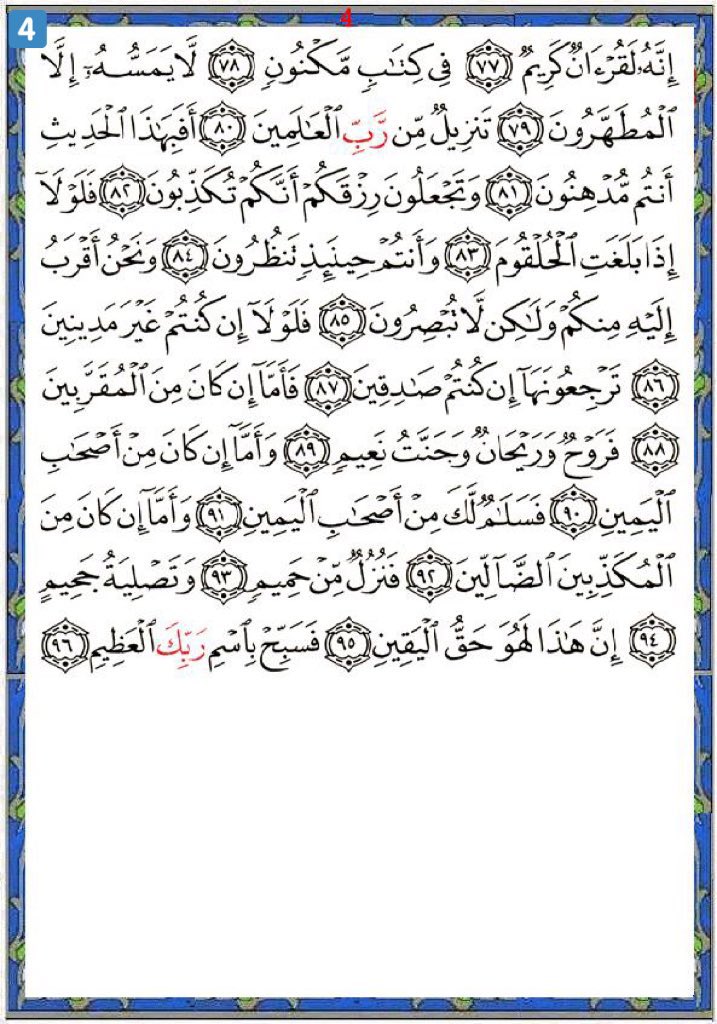 4
4
إِنَّهُۥ لَقُرْءَانٌ كَرِيمٌ ٧٧ فِى كِتَٰبٍ مَّكْنُونٍ ٧٨ لَّا يَمَسُّهُۥٓ إِلَّا
ٱلْمُطَهَّرُونَ ٧٩ تَنزِيلٌ مِّن رَّبِّ ٱلْعَٰلَمِينَ ٨٠ أَفَبِهَٰذَا ٱلْحَدِيثِ
أَنتُم مُّدْهِنُونَ ٨١ وَتَجْعَلُونَ رِزْقَكُمْ أَنَّكُمْ تُكَذِّبُونَ ٨٢ فَلَوْلَآ
إِذَا بَلَغَتِ ٱلْحُلْقُومَ ٨٣ وَأَنتُمْ حِينَئِذٍ تَنظُرُونَ ٨٤ وَنَحْنُ أَقْرَبُ
إِلَيْهِ مِنكُمْ وَلَٰكِن لَّا تُبْصِرُونَ ٨٥ فَلَوْلَآ إِن كُنتُمْ غَيْرَ مَدِينِينَ
٨٦ تَرْجِعُونَهَآ إِن كُنتُمْ صَٰدِقِينَ ٨٧ فَأَمَّآ إِن كَانَ مِنَ ٱلْمُقَرَّبِينَ
٨٨ فَرَوْحٌ وَرَيْحَانٌ وَجَنَّتُ نَعِيمٍ ٨٩ وَأَمَّآ إِن كَانَ مِنْ أَصْحَٰبِ
ٱلْيَمِينِ ٩٠ فَسَلَٰمٌ لَّكَ مِنْ أَصْحَٰبِ ٱلْيَمِينِ ٩١ وَأَمَّآ إِن كَانَ مِنَ
ٱلْمُكَذِّبِينَ ٱلضَّآلِّينَ ٩٢ فَنُزُلٌ مِّنْ حَمِيمٍ ٩٣ وَتَصْلِيَةُ جَحِيمٍ
٩٤ إِنَّ هَٰذَا لَهُوَ حَقُّ ٱلْيَقِينِ ٩٥ فَسَبِّحْ بِٱسْمِ رَبِّكَ ٱلْعَظِيمِ ٩٦